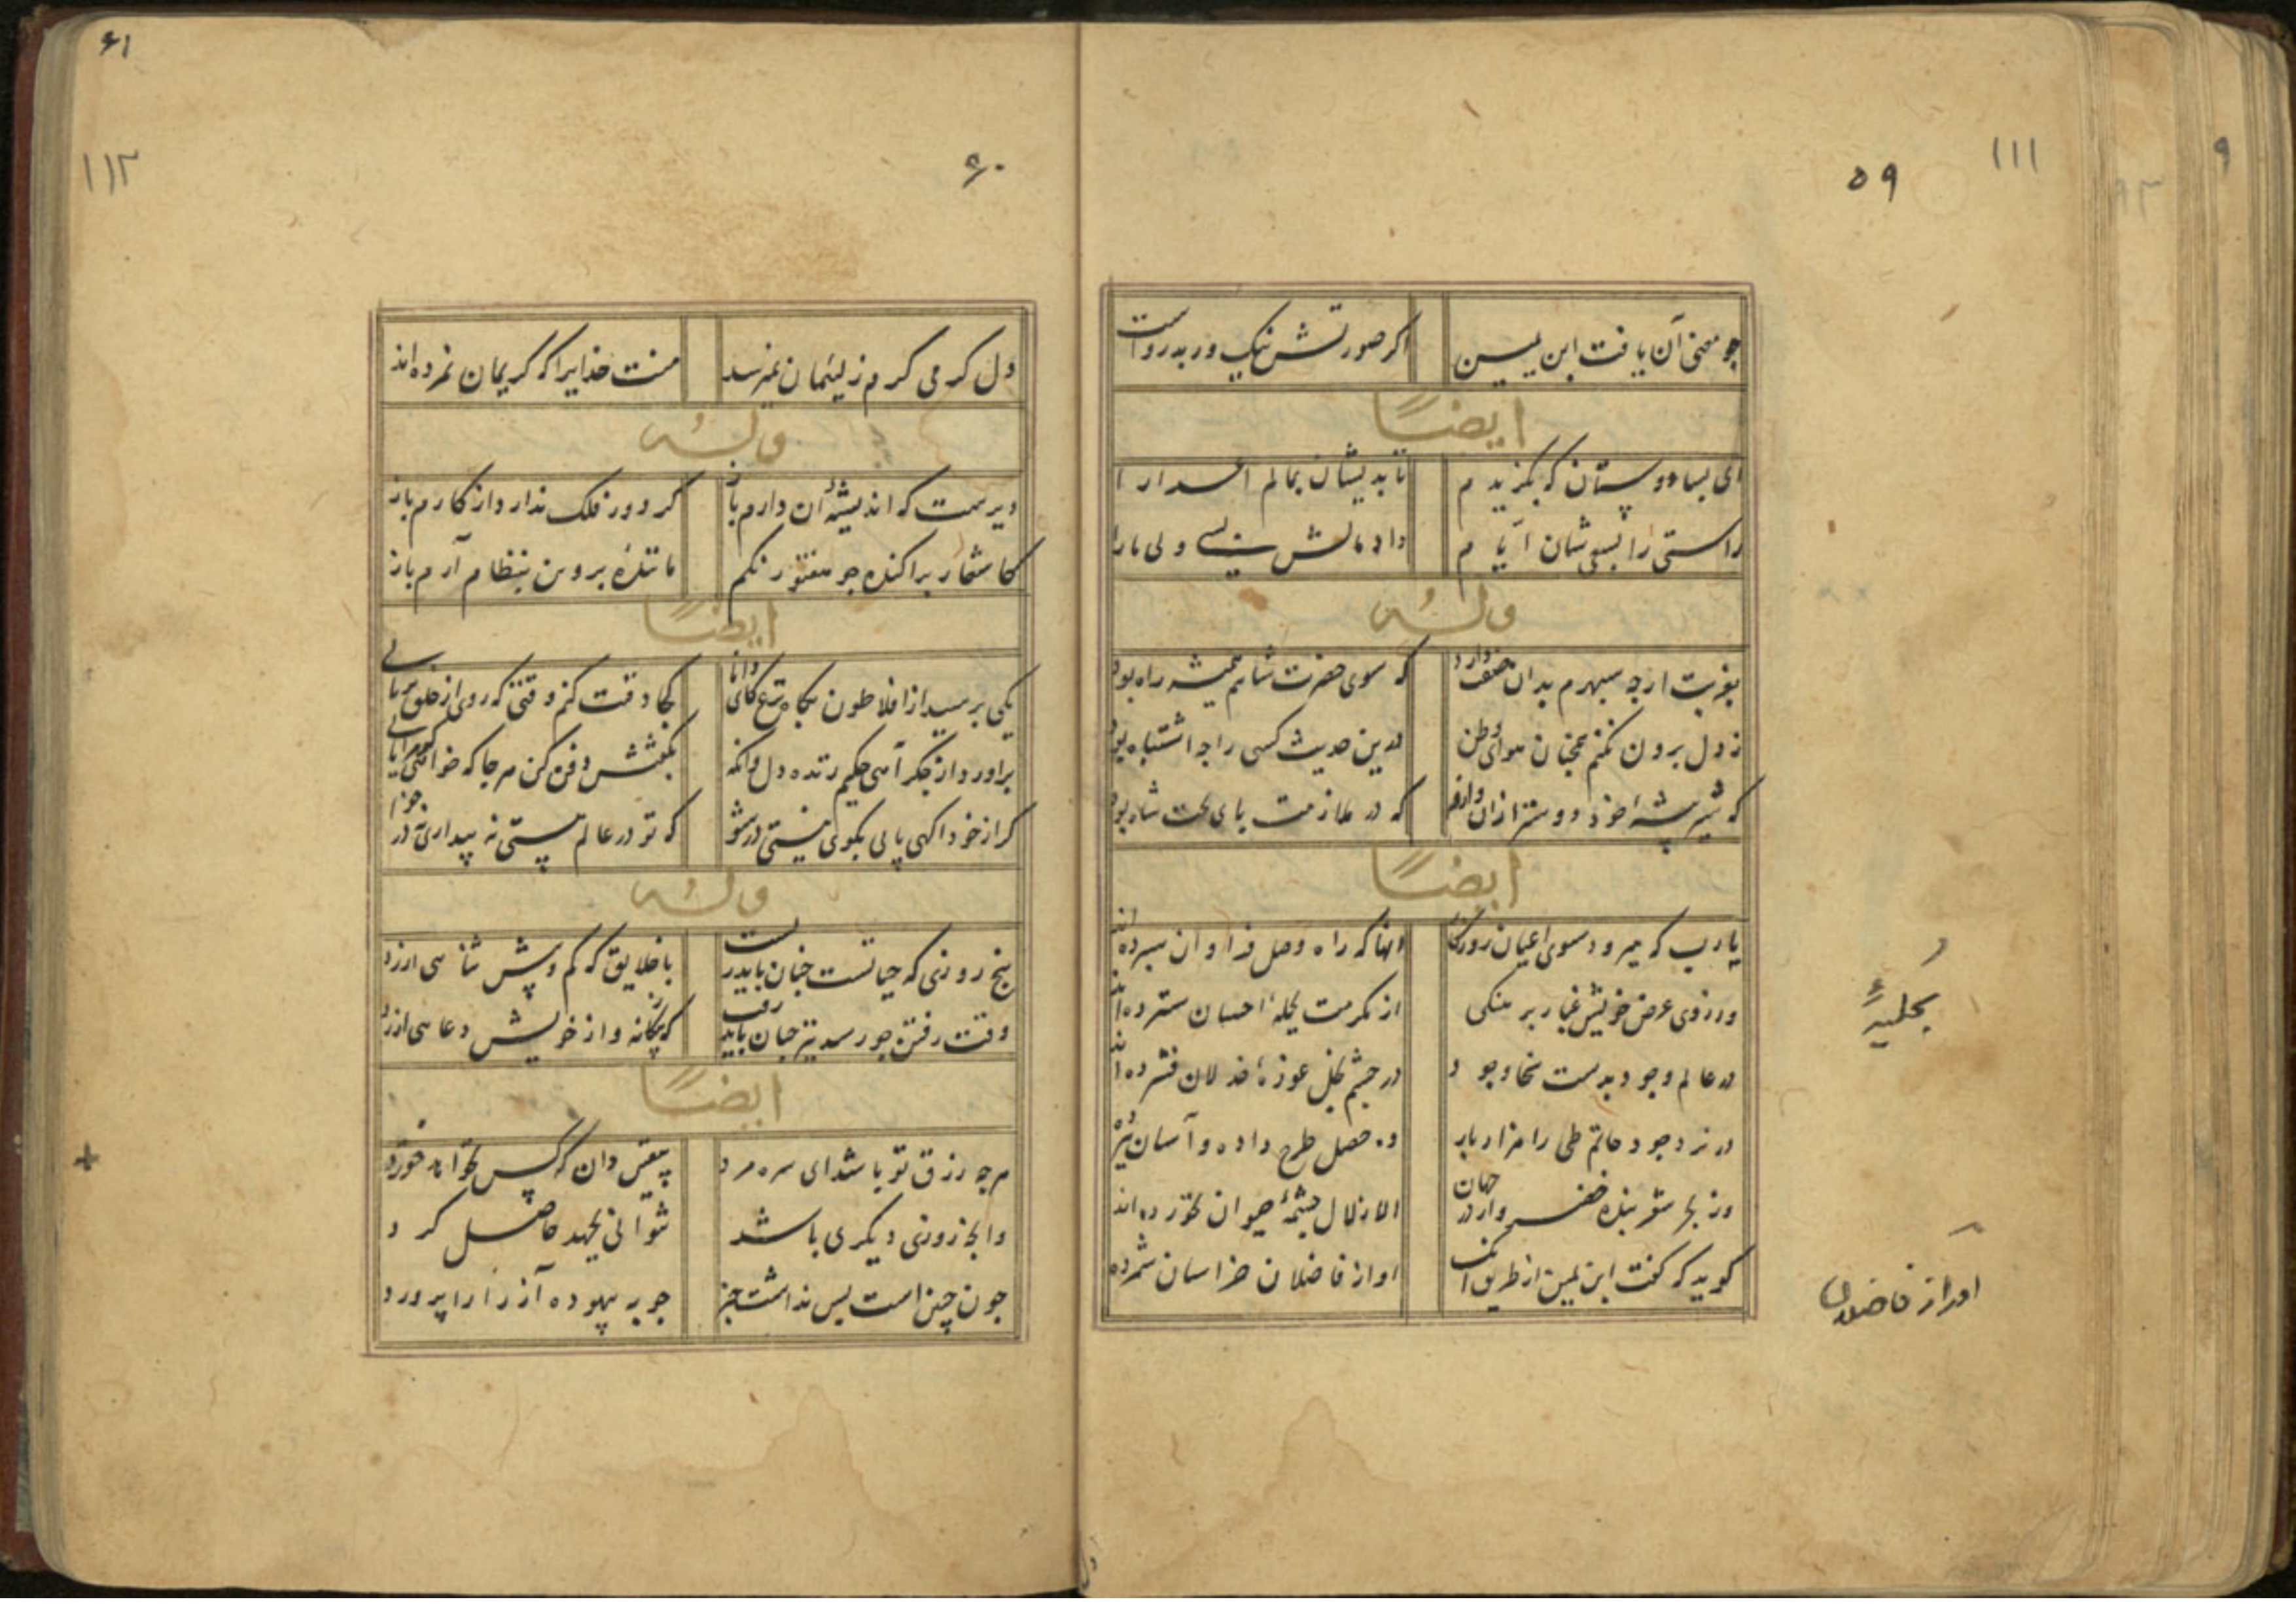 ۵۹
۱۱۱
چو معنی آن یافت ابن یمین اکر صورتش نیک ور بد رواست
ایضاً
ای بسا دوستان که بگزیدم تا بدیشان بمالم اعدا را
راستی را بسی شان آنا م داد مالش بسی ولی ما را
وله
بغربت ارچه سپهرم بدان صفت دارد که سوی حضرت شاهم همیشه راه بود
ز دل برون نکنم همچنان هوای وطن درین حدیث کسی را چه اشتباه بود
که شیر بیشه خود دوستر از آن دارد که در ملازمت پای تخت شاه بود
ایضاً
یا رب که میرود سوی اعیان روزکار انها که راه وصل فراوان سپرده اند
وز روی عرض خویش غبار بر منکی از مکرمت بحلهٔ احسان سترده اند
در عالم وجود بدست سخا وجود در چشم بخل غوزهٔ خذلان فشرده اند
در نرد جود حاتم طی را هزار بار ده خصل طرح داده و آسان ببرده
وز بحر شعر بنده خضر وار در جهان الا زلال چشمهٔ حیوان نخورده اند
کوید که کفت ابن یمین از طریق آنک او از فاضلان خراسان شمرده
بحلیهٔ
او را ز فاضلان
۶۱
۱۱۲
۶۰
ول کرمی کرم ز لئیمان نمیرسد منت خدایرا که کریمان نمرده اند
وله
دیرست که اندیشهٔ آن دارم باز کر دور فلک ندارد از کارم باز
کاشعار پراکنده چو منثور نکم مانندهٔ پروین بنظام آرم باز
ایضاً
یکی پرسید از افلاطون بکاه نزع کای دانا کجا دفنت کنم وقتی که روی از خلق برتابی
براورد از جکر آهی حکیم زنده دل وانکه بکفتش دفن کن هر جا که خواهی کر مرا یابی
کر از خود اکهی یابی بکوی نیستی در شو که تو در عالم هستی نه بیداری نه در خوابی
وله
پنج روزی که حیاتست چنان باید زیست با خلایق که کم و بیش ثنا می ارزد
وقت رفتن چو رسد نیز چنان باید رفت که بیکانه و از خویش دعا می ارزد
ایضاً
هرچه رزق تو باشد ای سره مرد بیقین دان که کس نخواهد خورد
وانچ روزی دیکری باشد نتوانی بجهد حاصل کرد
چون چنین است پس نداشت چیز چو به بیهوده آز را پرورد